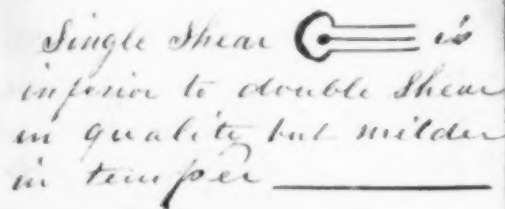 Single Shear is
inferior to double Shear
in quality but milder
in temper